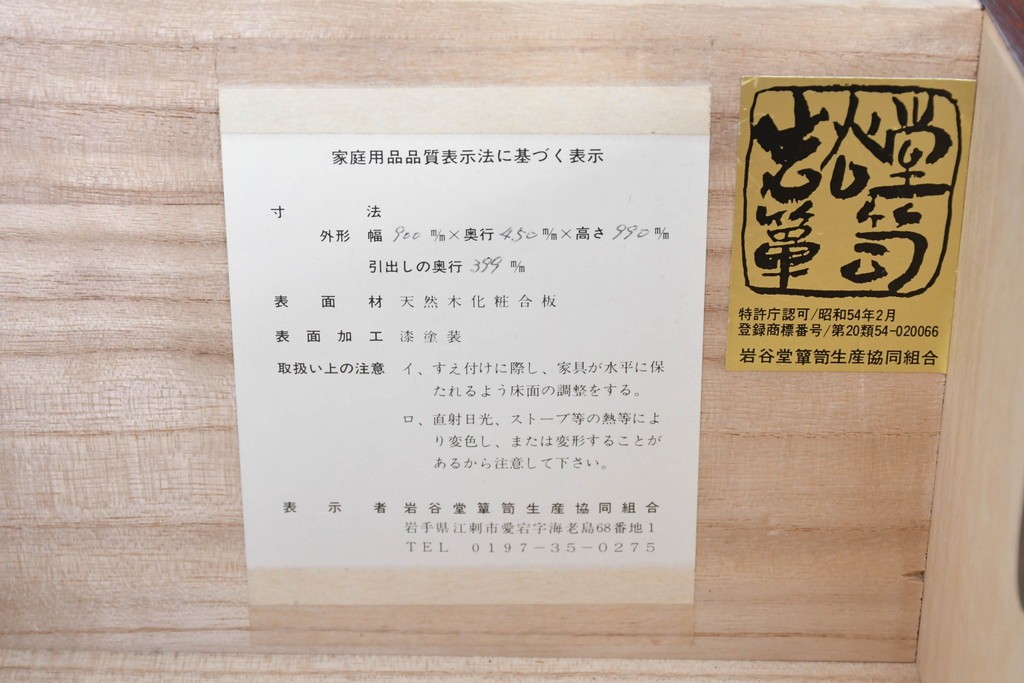 家庭用品品質表示法に基づく表示
寸法
外形 幅 900 m/m×奥行 450 m/m×高さ 990 m/m
引出しの奥行 399 m/m
表面材 天然木化粧合板
表面加工 漆塗装
取扱い上の注意 イ、すえ付けに際し、家具が水平に保
たれるよう床面の調整をする。
ロ、直射日光、ストーブ等の熱等によ
り変色し、または変形することが
あるから注意して下さい。
表示者 岩谷堂簞笥生産協同組合
岩手県江刺市愛宕字海老島68番地1
TEL 0197-35-0275
岩谷堂
簞笥
特許庁認可/昭和54年2月
登録商標番号/第20類54-020066
岩谷堂簞笥生産協同組合